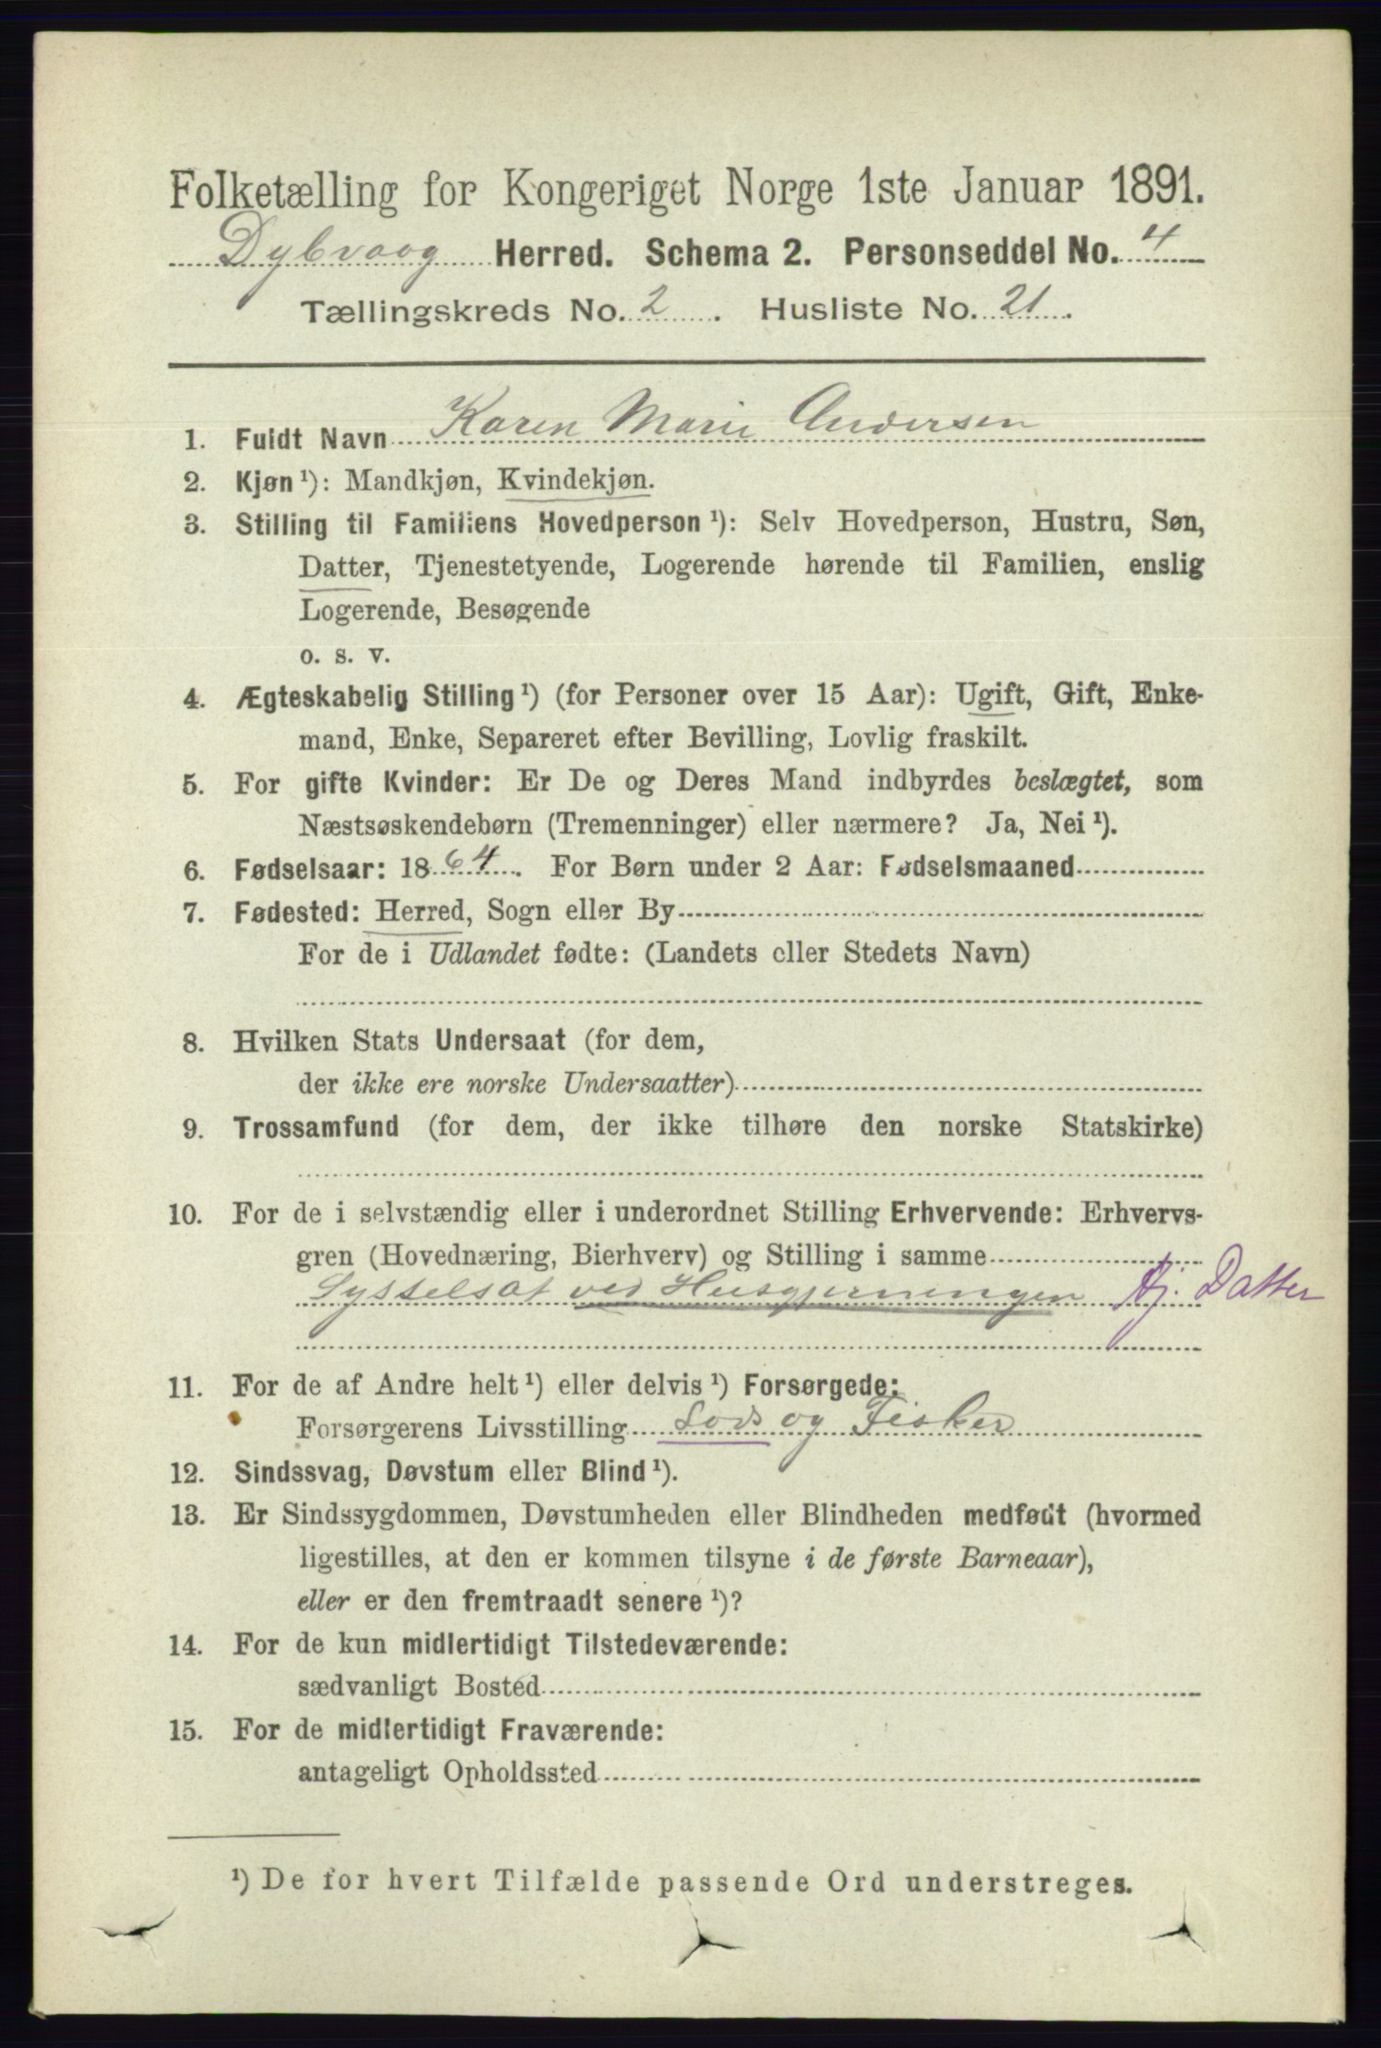 Folketælling for Kongeriget Norge 1ste Januar 1891.
Dybvaag Herred. Schema 2. Personseddel No. 4
Tællingskreds No. 2. Husliste No. 21.
1. Fuldt Navn Karen Marie Andersen
2. Kjøn¹): Mandkjøn, Kvindekjøn.
3. Stilling til Familiens Hovedperson¹): Selv Hovedperson, Hustru, Søn,
Datter, Tjenestetyende, Logerende hørende til Familien, enslig
Logerende, Besøgende
o. s. v.
4. Ægteskabelig Stilling¹) (for Personer over 15 Aar): Ugift, Gift, Enke-
mand, Enke, Separeret efter Bevilling, Lovlig fraskilt.
5. For gifte Kvinder: Er De og Deres Mand indbyrdes beslægtet, som
Næstsøskendebørn (Tremenninger) eller nærmere? Ja, Nei¹).
6. Fødselsaar: 1864. For Børn under 2 Aar: Fødselsmaaned
7. Fødested: Herred, Sogn eller By
For de i Udlandet fødte: (Landets eller Stedets Navn)
8. Hvilken Stats Undersaat (for dem,
der ikke ere norske Undersaatter)
9. Trossamfund (for dem, der ikke tilhøre den norske Statskirke)
10. For de i selvstændig eller i underordnet Stilling Erhvervende: Erhvervs-
gren (Hovednæring, Bierhverv) og Stilling i samme
Sysselsat ved Husgjerningen Hj. Datter
11. For de af Andre helt¹) eller delvis¹) Forsørgede:
Forsørgerens Livsstilling Lods og Fisker
12. Sindssvag, Døvstum eller Blind¹).
13. Er Sindssygdommen, Døvstumheden eller Blindheden medfødt (hvormed
ligestilles, at den er kommen tilsyne i de første Barneaar),
eller er den fremtraadt senere¹)?
14. For de kun midlertidigt Tilstedeværende:
sædvanligt Bosted
15. For de midlertidigt Fraværende:
antageligt Opholdssted
¹) De for hvert Tilfælde passende Ord understreges.